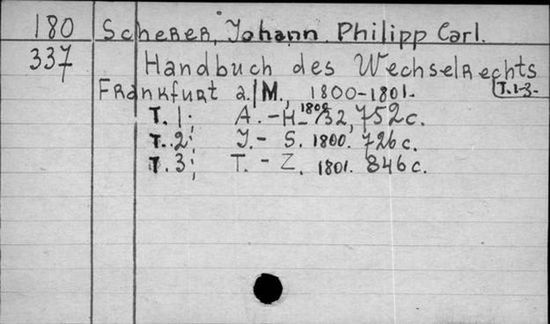 180 Scherer, Johann Philipp Carl.
337 Handbuch des Wechselrechts
T.1-3.
Frankfurt a/M., 1800-1801.
T. 1; A. - H. 1800 752 c.
T. 2; J. - S. 1800. 726 c.
T. 3; T. - Z. 1801. 846 c.